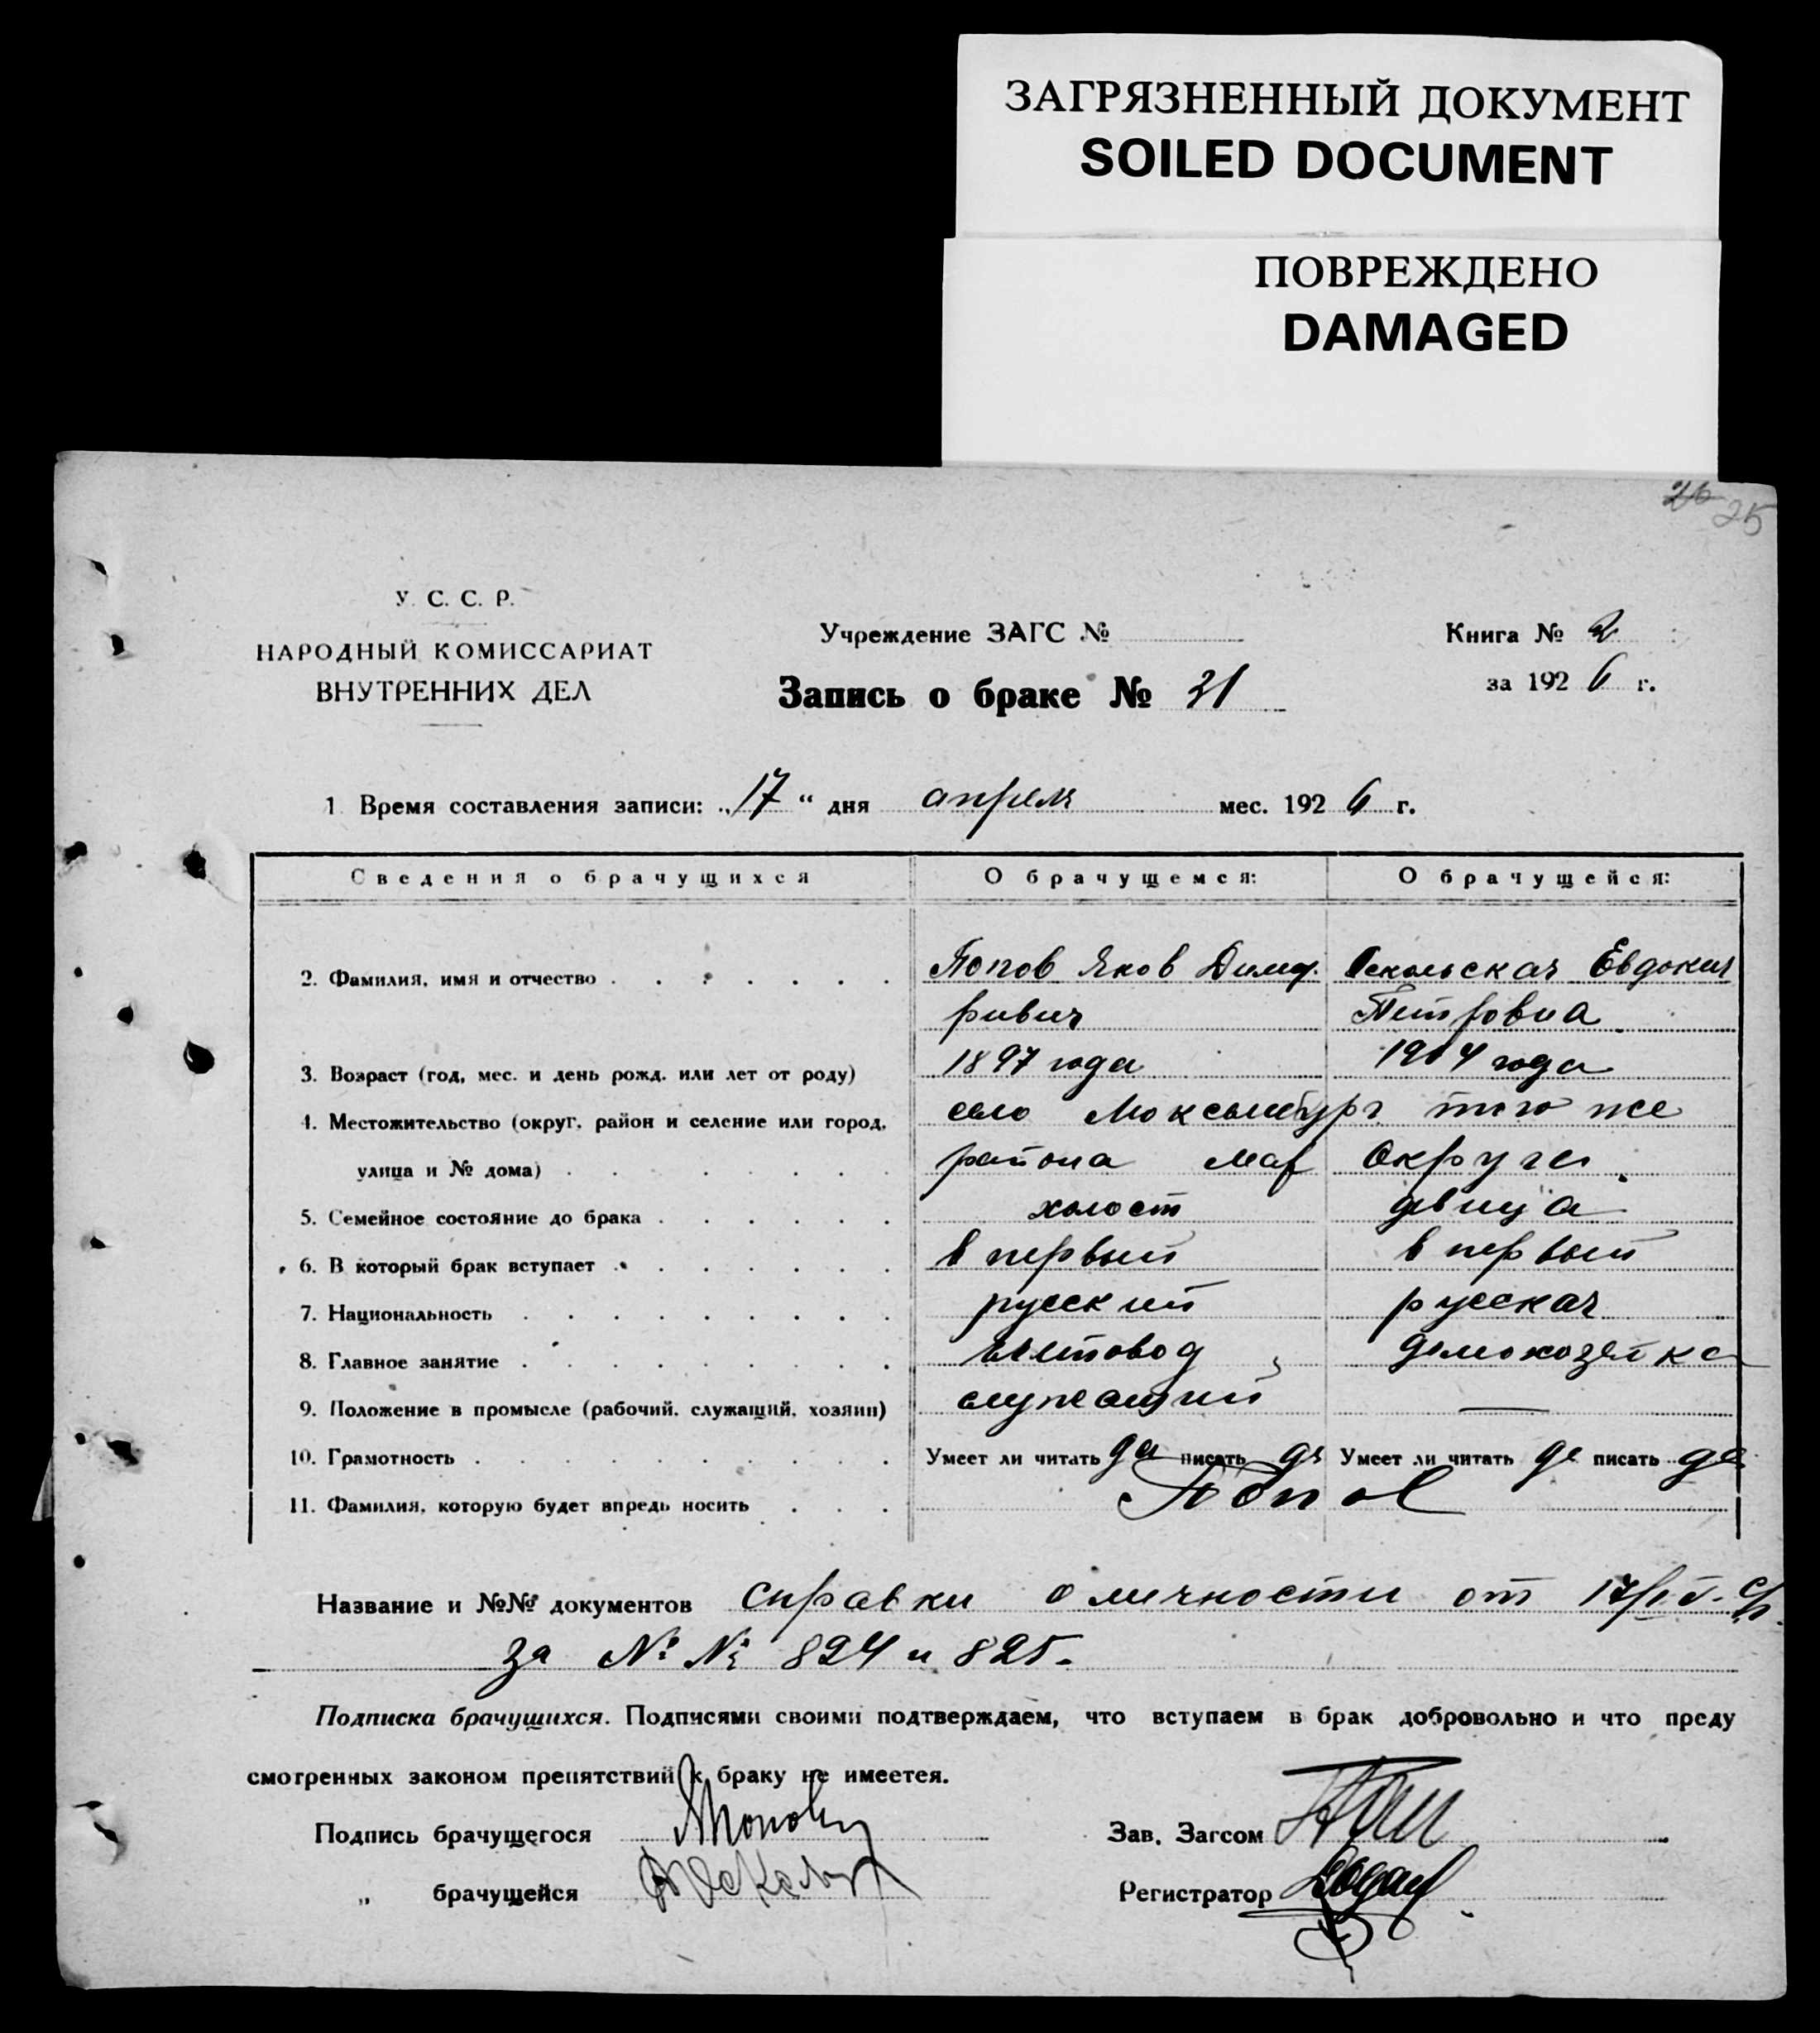 ЗАГРЯЗНЕННЫЙ ДОКУМЕНТ
SOILED DOCUMENT
ПОВРЕЖДЕНО
DAMAGED
25
У. С. С. Р.
НАРОДНЫЙ КОМИССАРИАТ
ВНУТРЕННИХ ДЕЛ
Учреждение ЗАГС №
Запись о браке № 31
Книга № 2
за 1926 г.
1. Время составления записи: „17“ дня апреля мес. 1926 г.
Сведения о брачущихся О брачущемся: О брачущейся:
2. Фамилия, имя и отчество Попов Яков Димит- Оскольская Евдокия
риевич Петровна
3. Возраст (год, мес. и день рожд. или лет от роду) 1897 года 1904 года
4. Местожительство (округ, район и селение или город, село того же
улица и № дома) района Мар округа.
5. Семейное состояние до брака холост девица
6. В который брак вступает в первый в первый
7. Национальность русский русская
8. Главное занятие счетовод домохозяйка
9. Положение в промысле (рабочий, служащий, хозяин) служащий —
10. Грамотность Умеет ли читать да писать да Умеет ли читать да писать да
11. Фамилия, которую будет впредь носить Попов
Название и №№ документов справки о личности от
за №№ 824 и 825.
Подписка брачущихся. Подписями своими подтверждаем, что вступаем в брак добровольно и что преду
смотренных законом препятствий к браку не имеется.
Подпись брачущегося ЯПопов Зав. Загсом
„ брачущейся Регистратор